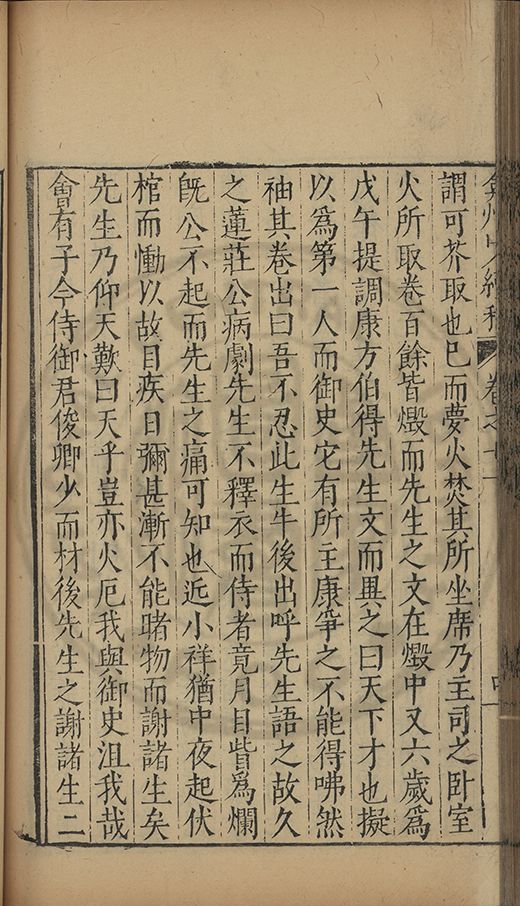 弇州山人續稿 卷之七十
謂可芥取也巳而夢火焚其所坐席乃主司之卧室
火所取卷百餘皆燬而先生之文在燬中又六歲爲
戊午提調康方伯得先生文而異之曰天下才也擬
以爲第一人而御史它有所主康爭之不能得咈然
袖其卷出曰吾不忍此生牛後出呼先生語之故久
之蓮莊公病劇先生不釋衣而侍者竟月目眥爲爛
旣公不起而先生之痛可知也近小祥猶中夜起伏
棺而慟以故目疾日彌甚漸不能睹物而謝諸生矣
先生乃仰天歎曰天乎豈亦火厄我與御史沮我哉
會有子今侍御君俊卿少而材後先生之謝諸生二